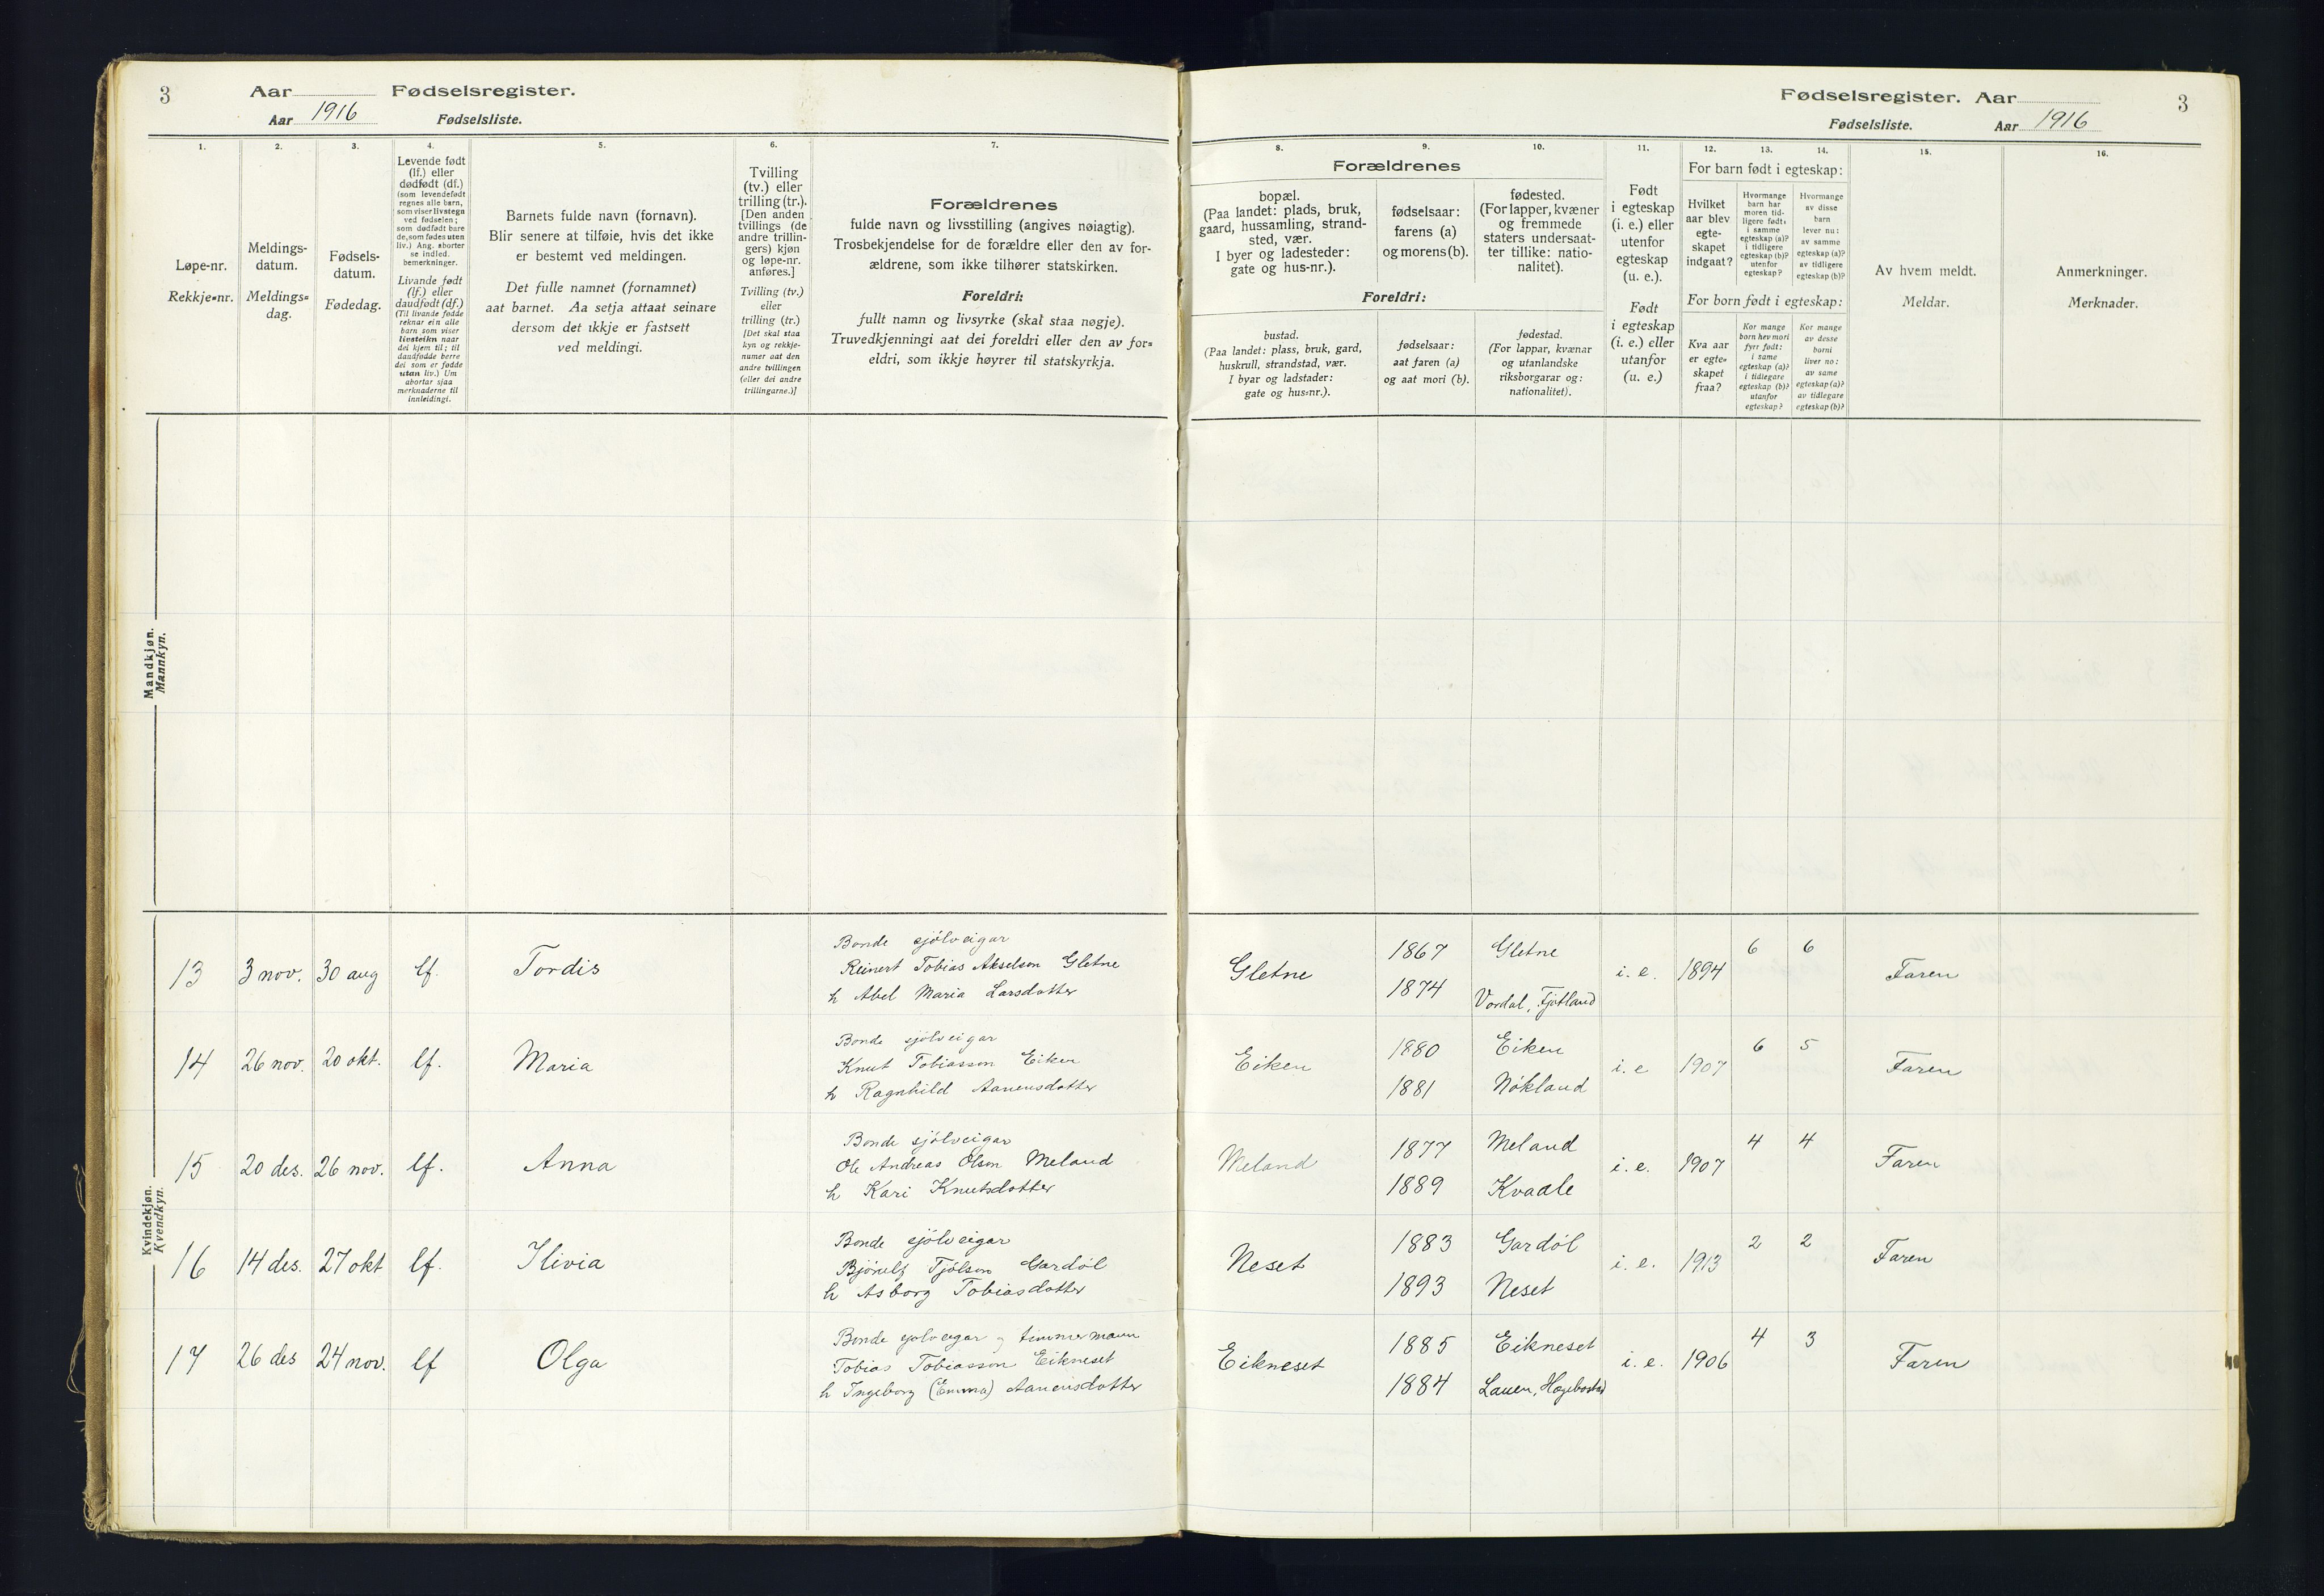 3 Aar Fødselsregister.
Aar 1916 Fødselsliste.
1. 2. 3. 4. 5. 6. 7.
Løpe-nr.
Rekkje=nr.
Meldings-
datum.
Meldings=
dag.
Fødsels-
datum.
Fødedag.
Levende født
(lf.) eller
dødfødt (df.)
(som levendefødt
regnes alle barn,
som viser livstegn
ved fødselen;
som dødfødt bare
de, som fødes uten
liv.) Ang. aborter
se indled.
bemerkninger.
Livande født
(lf.) eller
daudfødt (df.)
(Til livande fødde
reknar ein alle
barn som viser
livsteikn naar
dei kjem til; til
daudfødde berre
dei som er fødde
utan liv.) Um
abortar sjaa
merknaderne til
innleidingi.
Barnets fulde navn (fornavn).
Blir senere at tilføie, hvis det ikke
er bestemt ved meldingen.
Det fulle namnet (fornamnet)
aat barnet. Aa setja attaat seinare
dersom det ikkje er fastsett
ved meldingi.
Tvilling
(tv.) eller
trilling (tr.).
[Den anden
tvillings (de
andre trillin-
gers) kjøn
og løpe-nr.
anføres.]
Tvilling (tv.)
eller
trilling (tr.)
[Det skal staa
kyn og rekkje-
numer aat den
andre tvillingen
(eller dei andre
trillingarne.)]
Forældrenes
fulde navn og livsstilling (angives nøiagtig).
Trosbekjendelse for de forældre eller den av for-
ældrene, som ikke tilhører statskirken.
Foreldri:
fullt namn og livsyrke (skal staa nøgje).
Truvedkjenningi aat dei foreldri eller den av for=
eldri, som ikkje høyrer til statskyrkja.
Mandkjøn.
Mannkyn.
Kvindekjøn.
Kvendkyn.
13 3 nov. 30 aug lf. Tordis
Bonde sjölveigar
Reinert Tobias Akselson Gletne
h Abel Maria Larsdotter
14 26 nov. 20 okt. lf. Maria
Bonde sjölveigar
Knut Tobiasson Eiken
h Ragnhild Aanensdotter
15 20 des. 26 nov. lf. Anna
Bonde sjölveigar
Ole Andreas Olson Meland
h Kari Knutsdotter
16 14 des. 27 okt lf. Ilivia
Bonde sjölveigar
Tjölson Gardöl
h Asborg Tobiasdotter
17 26 des 24 nov. lf Olga
Bonde sjolveigar og timmermann
Tobias Tobiasson Eikneset
h Ingeborg (Emma) Aanensdotter
Fødselsregister. Aar 3
Fødselsliste. Aar 1916
8. 9. 10. 11. 12. 13. 14. 15. 16.
Forældrenes
bopæl.
(Paa landet: plads, bruk,
gaard, hussamling, strand-
sted, vær.
I byer og ladesteder:
gate og hus-nr.).
fødselsaar:
farens (a)
og morens (b).
fødested.
(For lapper, kvæner
og fremmede
staters undersaat-
ter tillike: natio-
nalitet).
Foreldri:
bustad.
(Paa landet: plass, bruk, gard,
huskrull, strandstad, vær.
I byar og ladstader:
gate og hus=nr.).
fødselsaar:
aat faren (a)
og aat mori (b).
fødestad.
(For lappar, kvænar
og utanlandske
riksborgarar og:
nationalitet).
Født
i egteskap
(i. e.) eller
utenfor
egteskap
(u. e.).
Født
i egteskap
(i. e.) eller
utanfor
(u. e.)
For barn født i egteskap:
Hvilket
aar blev
egte-
skapet
indgaat?
Hvormange
barn har
moren tid-
ligere født:
i samme
egteskap (a)?
i tidligere
egteskap (b)?
utenfor
egteskap?
Hvormange
av disse
barn
lever nu:
av samme
egteskap (a)?
av tidligere
egteskap (b)?
For born født i egteskap:
Kva aar
er egte=
skapet
fraa?
Kor mange
born hev mori
fyrr født:
i same
egteskap (a)?
i tidlegare
egteskap (b)?
utanfor
egteskap?
Kor mange
av desse
borni
liver no:
av same
egteskap (a)?
av tidlegare
egteskap (b)?
Av hvem meldt.
Meldar.
Anmerkninger.
Merknader.
Gletne 1867 Gletne i. e. 1894 6 6 Faren
1874 Vordal, Fjotland
Eiken 1880 Eiken i. e 1907 6 5 Faren
1881 Nökland
Meland 1877 Meland i. e. 1907 4 4 Faren
1889 Kvaale
Neset 1883 Gardöl i. e. 1913 2 2 Faren
1893 Neset
Eikneset 1885 Eikneset i. e. 1906 4 3 Faren
1884 Lauen, Hægebostad